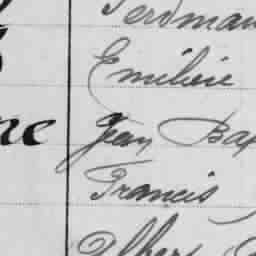 Ferdinan
Emilien
ne Jean Bap
Francis
Albert